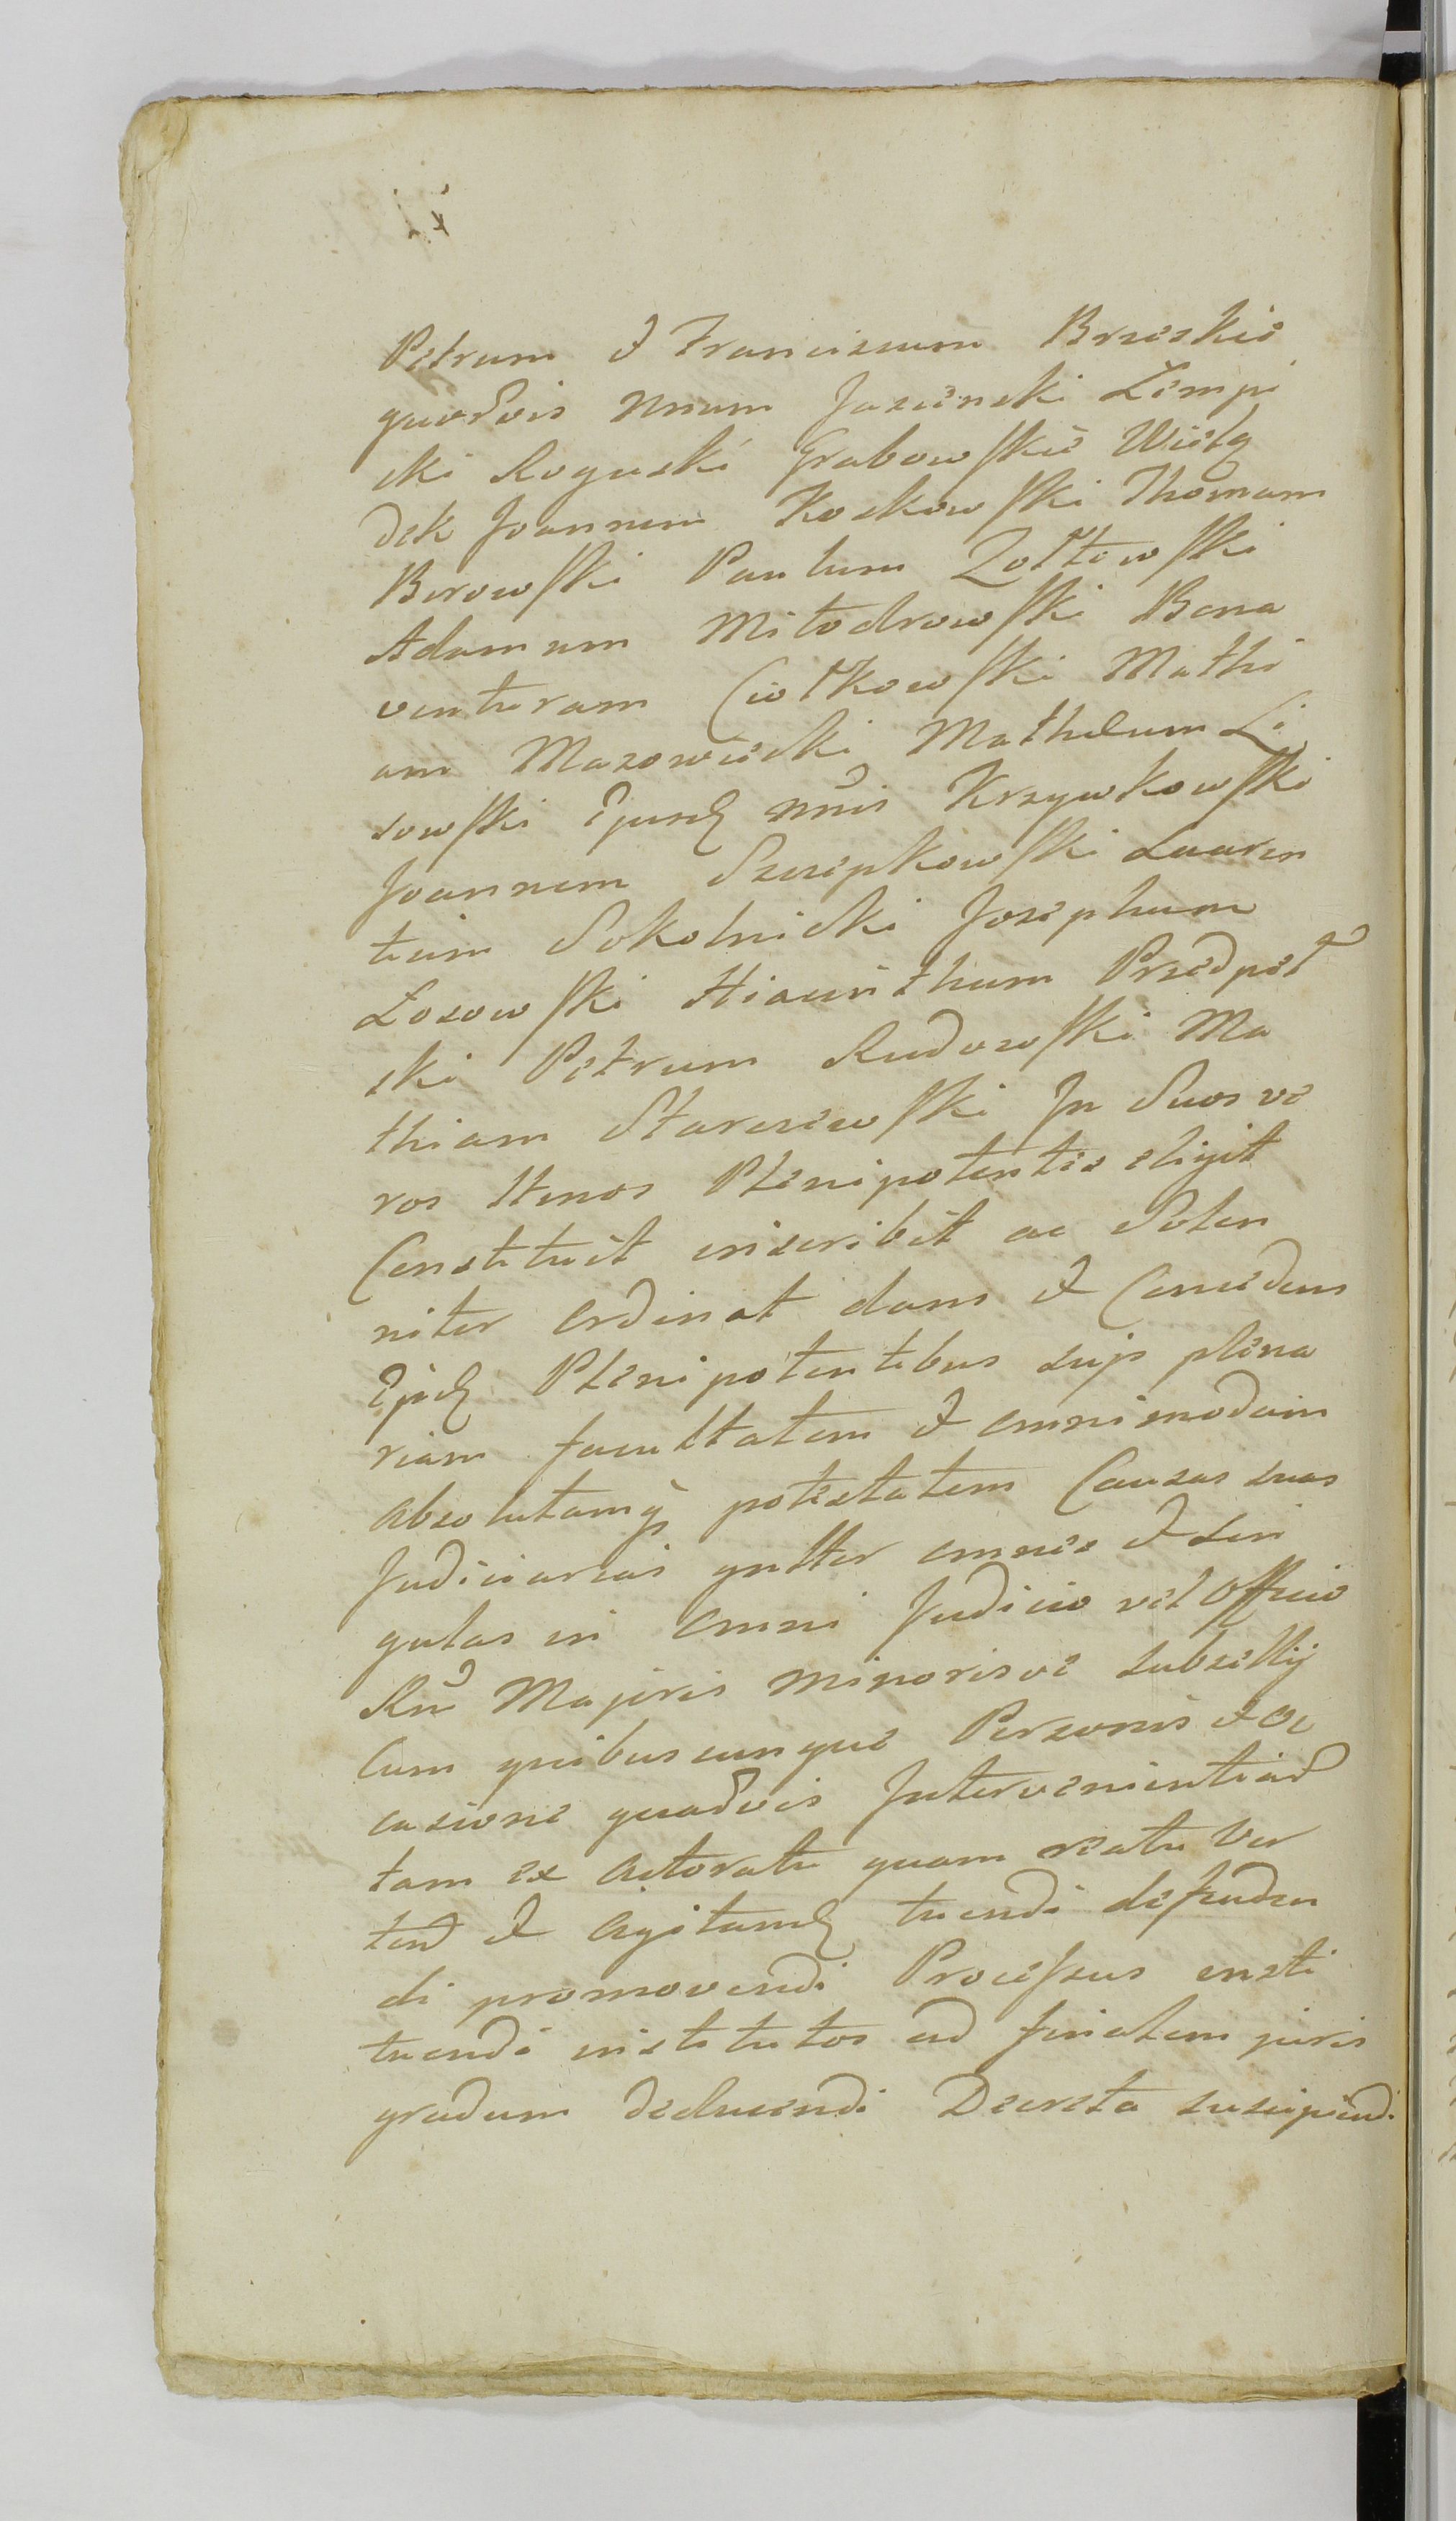 Petrum & Franciscum Brzeskie
quorvis Nnum Jasienski Lempi
cki Roguski Grabowskie Wielą
dek Joannem Koskowski Thomam
Borowski Paulum Zołtowski
Adamum Miłodrowski Bona
venturam Ciołkowski Mathi
am Mazowiecki Mathæum Li
sowski Ejusd Nnis Krzywkowski
Joannem Szczepkowski Lauren
tium Sokolnicki Josephum
Łosowski Hiacinthum Przedpeł
ski Petrum Rudowski Ma
thiam Starczewski In Suos ve
ros ttmos Plenipotentes eligit
Constituit inscribit ac Solen
niter Ordinat dans & Concedens
Ejsd Plenipotentibus suis plena
riam facultatem & omnimodam
absolutamq potestatem Causas suas
Judiciarias gnltter omnes & sin
gulas in Omni Judicio vel Officio
Rni Majoris Minorisve subsellij
Cum quibuscunque Personis & Oc
casione quadvis Intervenientiad
tam ex Actoratu quam reatu Ver
tend & Agitand tuendi defenden
di promovendi Processus insti
tuendi institutos ad finalem juris
gradum deducendi Decreta suscipiendi